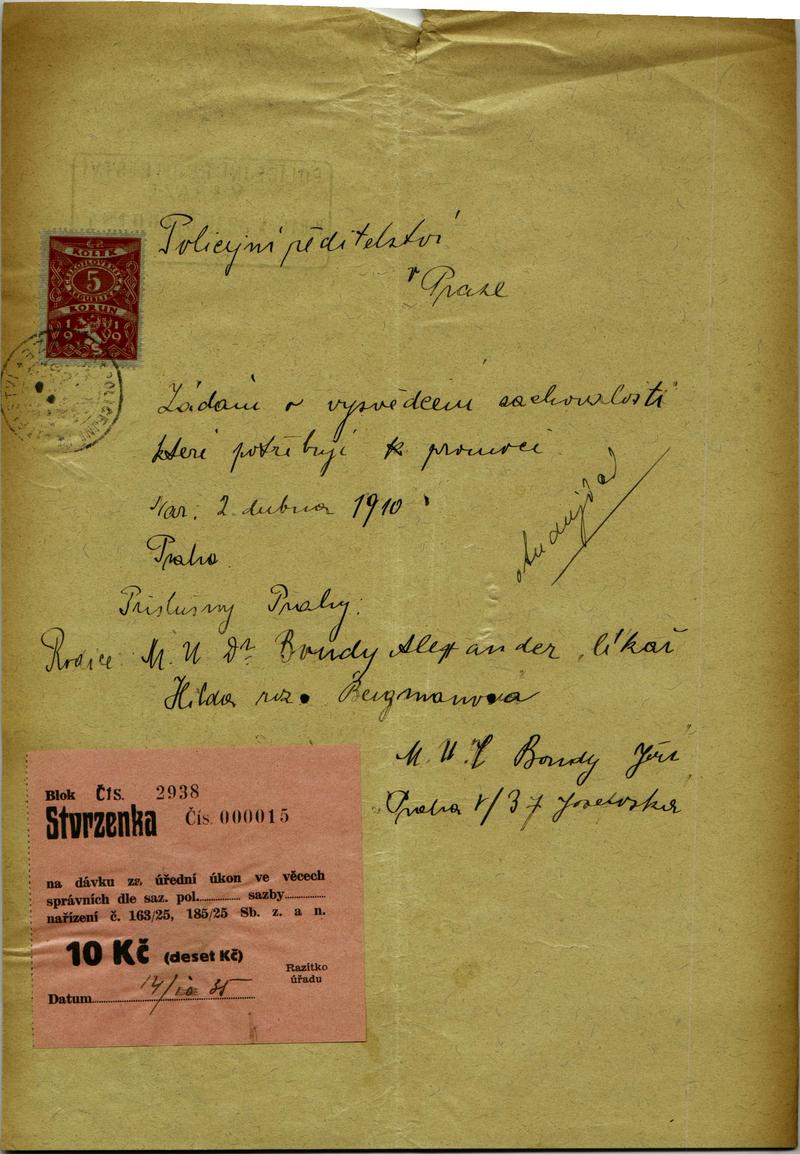 Policejní ředitelství
v Praze
KOLEK
5
KORUN
1919
Žádám o vysvědčení zachovalosti
které potřebuji k promoci
Nar. 2. dubna 1910
Praha
Příslušný Prahy.
Rodiče: M. U Dr. Bondy Alexander, lékař
Hilda roz. Bergmanova
M. U. C Bondy Jiří
Praha V/37 Josefovská
Blok ČIS. 2938
Stvrzenka Čís. 000015
na dávku za úřední úkon ve věcech
správních dle saz. pol. sazby
nařízení č. 163/25, 185/25 Sb. z. a n.
10 Kč (deset Kč)
Razítko
úřadu
Datum 14/10 35